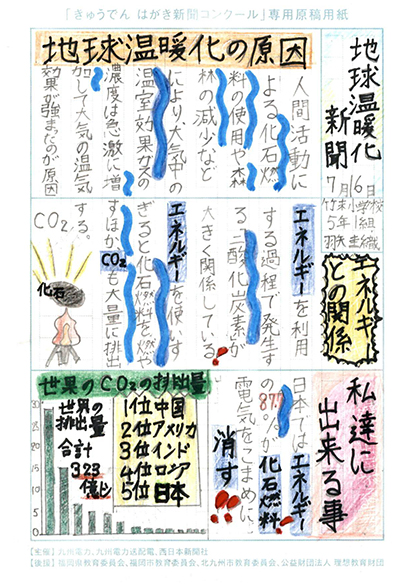 「きゅうでん はがき新聞コンクール」専用原稿用紙
地球温暖化
新聞
7月16日
竹末小学校
5年1組
地球温暖化の原因
人間活動に
よる化石燃
料の使用や森
林の減少など
により、大気中の
温室効果ガスの
濃度は急激に増
加して大気の温気
効果が強まったのが原因
エネルギー
との関係
エネルギーを利用
する過程で発生す
る、二酸化炭素が
大きく関係している。
エネルギーを使いす
ぎると化石燃料を燃や
すほかCO₂も大量に排出
する。
CO₂
化石
私達に
出来る事
日本ではエネルギー
の87%が化石燃料
電気をこまめに、
消す
世界のCO₂の排出量
世界の
排出量
合計
323
億t
1位中国
2位アメリカ
3位インド
4位ロシア
5位日本
30
25
20
15
10
5
0
【主催】九州電力、九州電力送配電、西日本新聞社
【後援】福岡県教育委員会、福岡市教育委員会、北九州市教育委員会、公益財団法人 理想教育財団